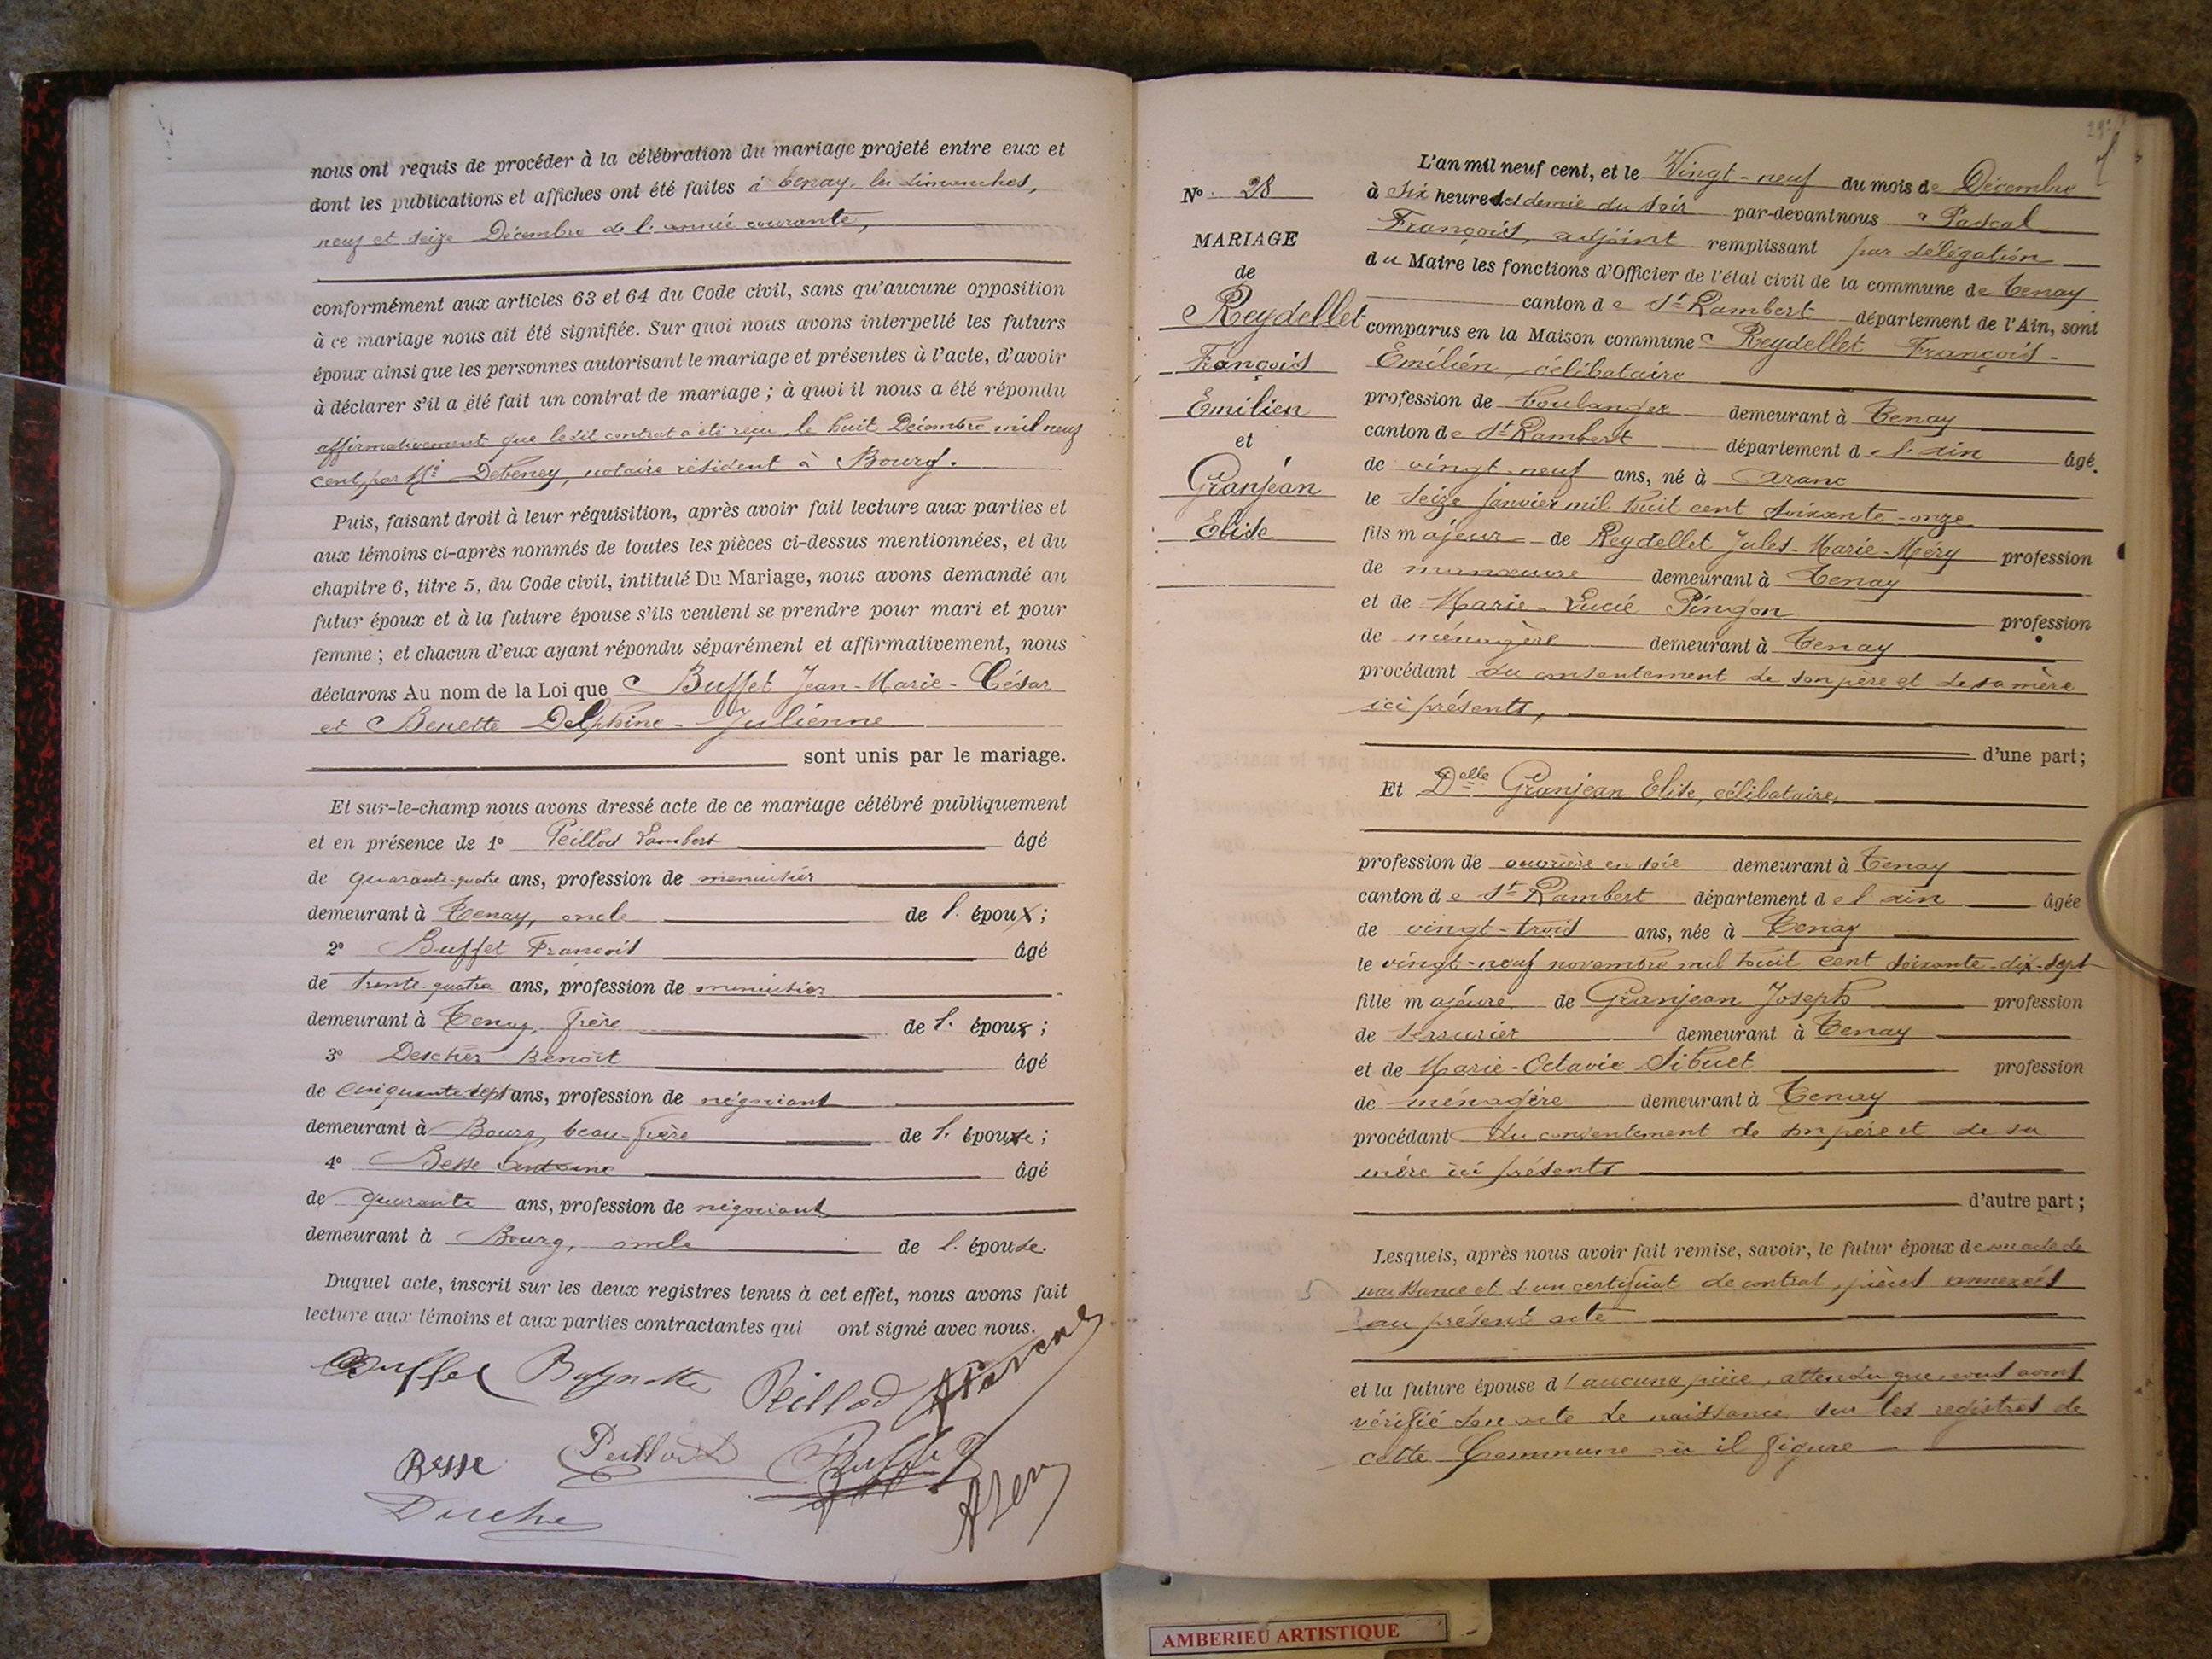 nous ont requis de procéder à la célébration du mariage projeté entre eux et
dont les publications et affiches ont été faites à Tenay, les dimanches,
neuf et seize Décembre de l'année courante,
conformément aux articles 63 et 64 du Code civil, sans qu'aucune opposition
à ce mariage nous ait été signifiée. Sur quoi nous avons interpellé les futurs
époux ainsi que les personnes autorisant le mariage et présentes à l'acte, d'avoir
à déclarer s'il a été fait un contrat de mariage ; à quoi il nous a été répondu
affirmativement que ledit contrat a été reçu le huit Décembre mil neuf
cent, par Me Debeney, notaire résident à Bourg.
Puis, faisant droit à leur réquisition, après avoir fait lecture aux parties et
aux témoins ci-après nommés de toutes les pièces ci-dessus mentionnées, et du
chapitre 6, titre 5, du Code civil, intitulé Du Mariage, nous avons demandé au
futur époux et à la future épouse s'ils veulent se prendre pour mari et pour
femme ; et chacun d'eux ayant répondu séparément et affirmativement, nous
déclarons Au nom de la Loi que Buffet Jean-Marie-César
et Benette Delphine-Julienne
sont unis par le mariage.
Et sur-le-champ nous avons dressé acte de ce mariage célébré publiquement
et en présence de 1° Peillod Lambert âgé
de quarante-quatre ans, profession de menuisier
demeurant à Tenay, oncle de l'époux ;
2° Buffet François âgé
de trente-quatre ans, profession de menuisier
demeurant à Tenay, frère de l'époux ;
3° Benoît âgé
de cinquante-sept ans, profession de négociant
demeurant à Bourg, beau-frère de l'épouse ;
4° Besse Antoine âgé
de quarante ans, profession de négociant
demeurant à Bourg, oncle de l'épouse.
Duquel acte, inscrit sur les deux registres tenus à cet effet, nous avons fait
lecture aux témoins et aux parties contractantes qui ont signé avec nous.
Buffet Peillod
Besse Peillod Buffet
N° 28
MARIAGE
de
Reydellet
François
Emilien
et
Granjean
Elise
L'an mil neuf cent, et le Vingt-neuf du mois de Décembre
à six heures et demie du soir par-devant nous Pascal
François, adjoint remplissant par délégation
du Maire les fonctions d'Officier de l'état civil de la commune de Tenay
canton de St Rambert département de l'Ain, sont
comparus en la Maison commune Reydellet François-
Emilien, célibataire
profession de boulanger demeurant à Tenay
canton de St Rambert département de l'ain âgé
de vingt-neuf ans, né à Aranc
le seize janvier mil huit cent soixante-onze
fils majeur de Reydellet Jules-Marie-Méry profession
de manœuvre demeurant à Tenay
et de Marie-Lucie Pingon profession
de ménagère demeurant à Tenay
procédant du consentement de son père et de sa mère
ici présents,
d'une part ;
Et Delle Granjean Elise, célibataire,
profession de ouvrière en soie demeurant à Tenay
canton de St Rambert département de l'ain âgée
de vingt-trois ans, née à Tenay
le vingt-neuf novembre mil huit cent soixante-dix-sept
fille majeure de Granjean Joseph profession
de serrurier demeurant à Tenay
et de Marie-Octavie Sibuet profession
de ménagère demeurant à Tenay
procédant du consentement de son père et de sa
mère ici présents
d'autre part ;
Lesquels, après nous avoir fait remise, savoir, le futur époux de son acte de
naissance et d'un certificat de contrat, pièces annexées
au présent acte
et la future épouse d'aucune pièce, attendu que nous avons
vérifié son acte de naissance sur les registres de
cette Commune où il figure
AMBERIEU ARTISTIQUE